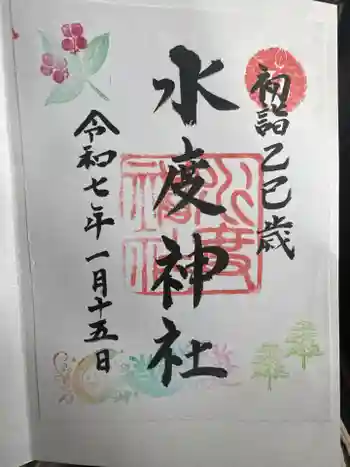 初詣乙巳歳
水度神社
令和七年一月十五日
水度
神社